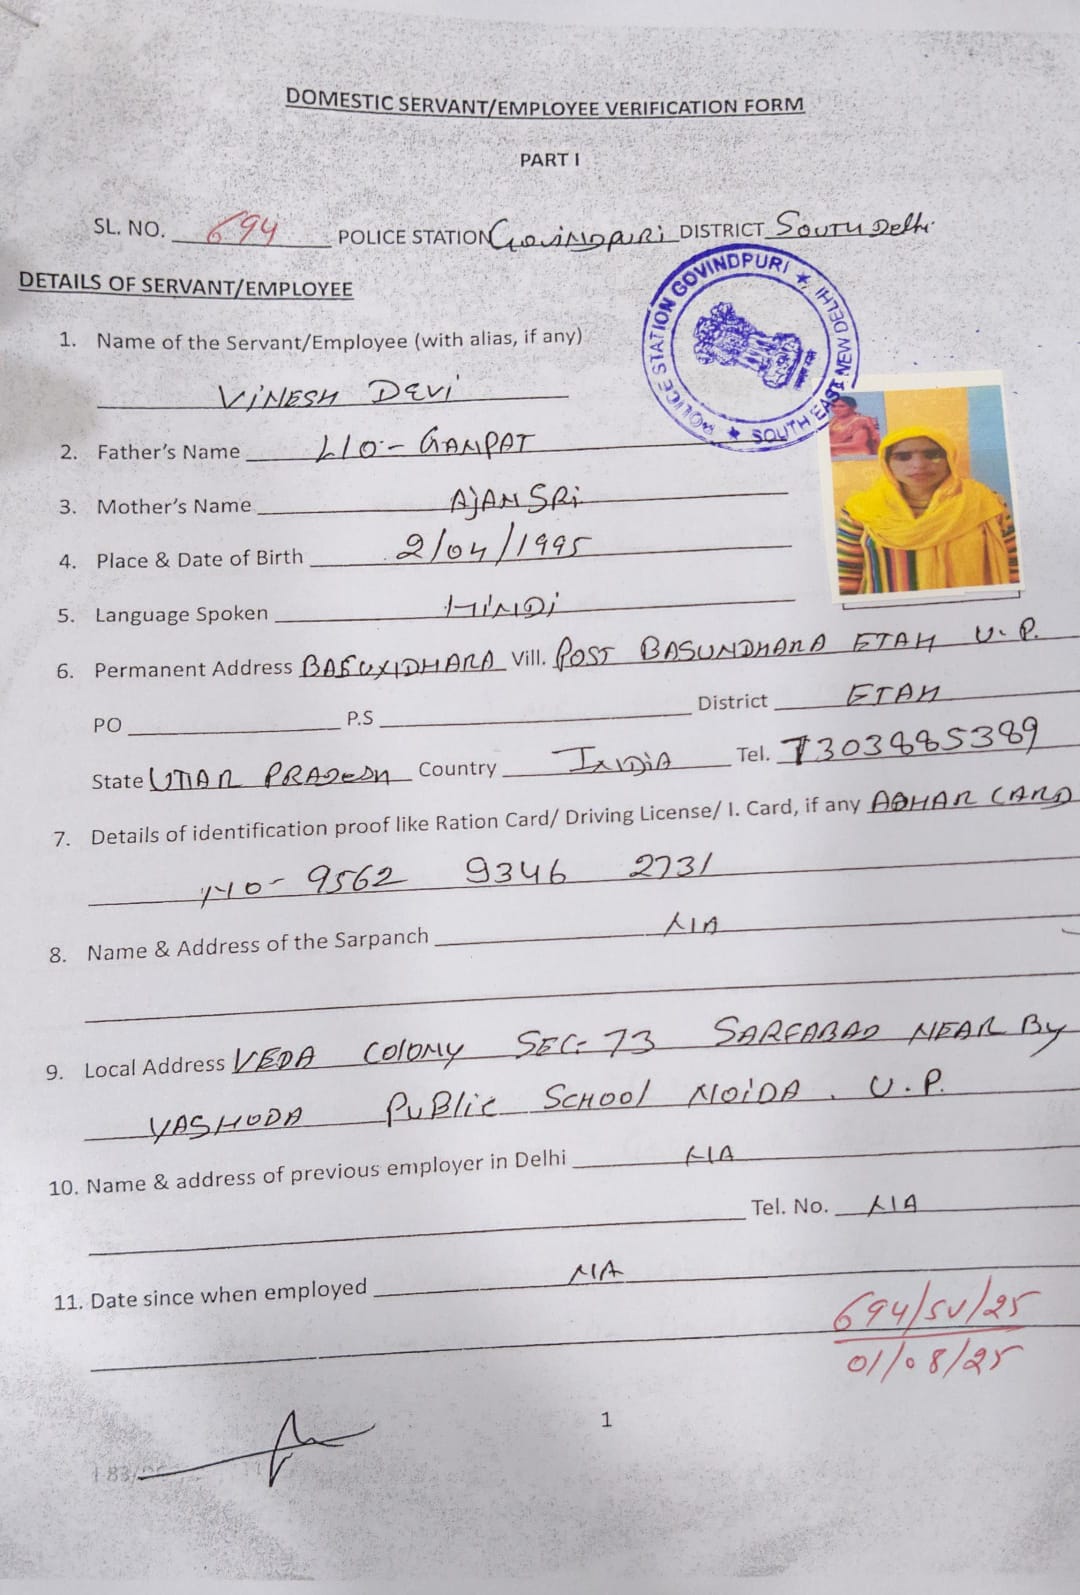 DOMESTIC SERVANT/EMPLOYEE VERIFICATION FORM
PART I
SL. NO. 694 POLICE STATION GOVINDPURI DISTRICT SOUTH Delhi.
POLICE STATION GOVINDPURI ★ NEW DELHI SOUTH EAST ★
DETAILS OF SERVANT/EMPLOYEE
1. Name of the Servant/Employee (with alias, if any)
ViNESH DEVi
2. Father's Name GANPAT
3. Mother's Name AJANSRi
4. Place & Date of Birth 2/04/1995
5. Language Spoken HiNDi
6. Permanent Address Vill. POST BASUNDHARA ETAH U.P.
PO P.S District ETAH
State UTTAR PRADESH Country INDiA Tel. 7303885389
7. Details of identification proof like Ration Card/ Driving License/ I. Card, if any ADHAR CARD
NO- 9562 9346 2731
8. Name & Address of the Sarpanch N/A
9. Local Address VEDA COlONY SEC- 73 SARFABAD NEAR By
YASHODA PuBlic SCHOOl NOiDA . U.P.
10. Name & address of previous employer in Delhi N/A
Tel. No. N/A
11. Date since when employed N/A
694/SV/25
01/08/25
1